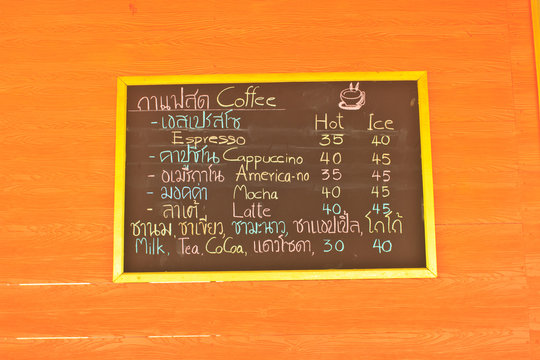 กาแฟสด Coffee
- เอสเปรสโซ Hot Ice
Espresso 35 40
- คาปูชิโน Cappuccino 40 45
- อเมริกาโน America-no 35 45
- มอคค่า Mocha 40 45
- ลาเต้ Latte 40 45
ชานม, ชาเขียว, ชามะนาว, ชาแอปเปิ้ล, โกโก้
Milk, Tea, CoCoa, แดงโซดา, 30 40